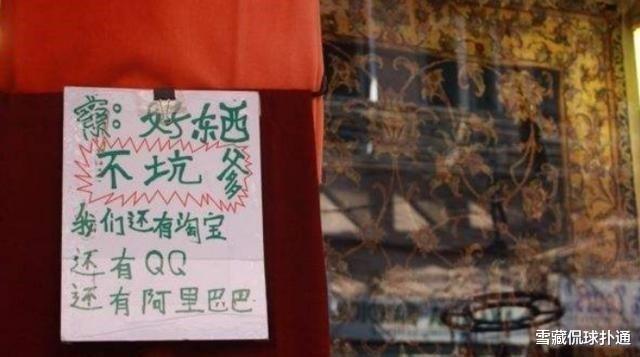 好东西
不坑爹
我们还有淘宝
还有QQ
还有阿里巴巴
雪藏侃球扑通